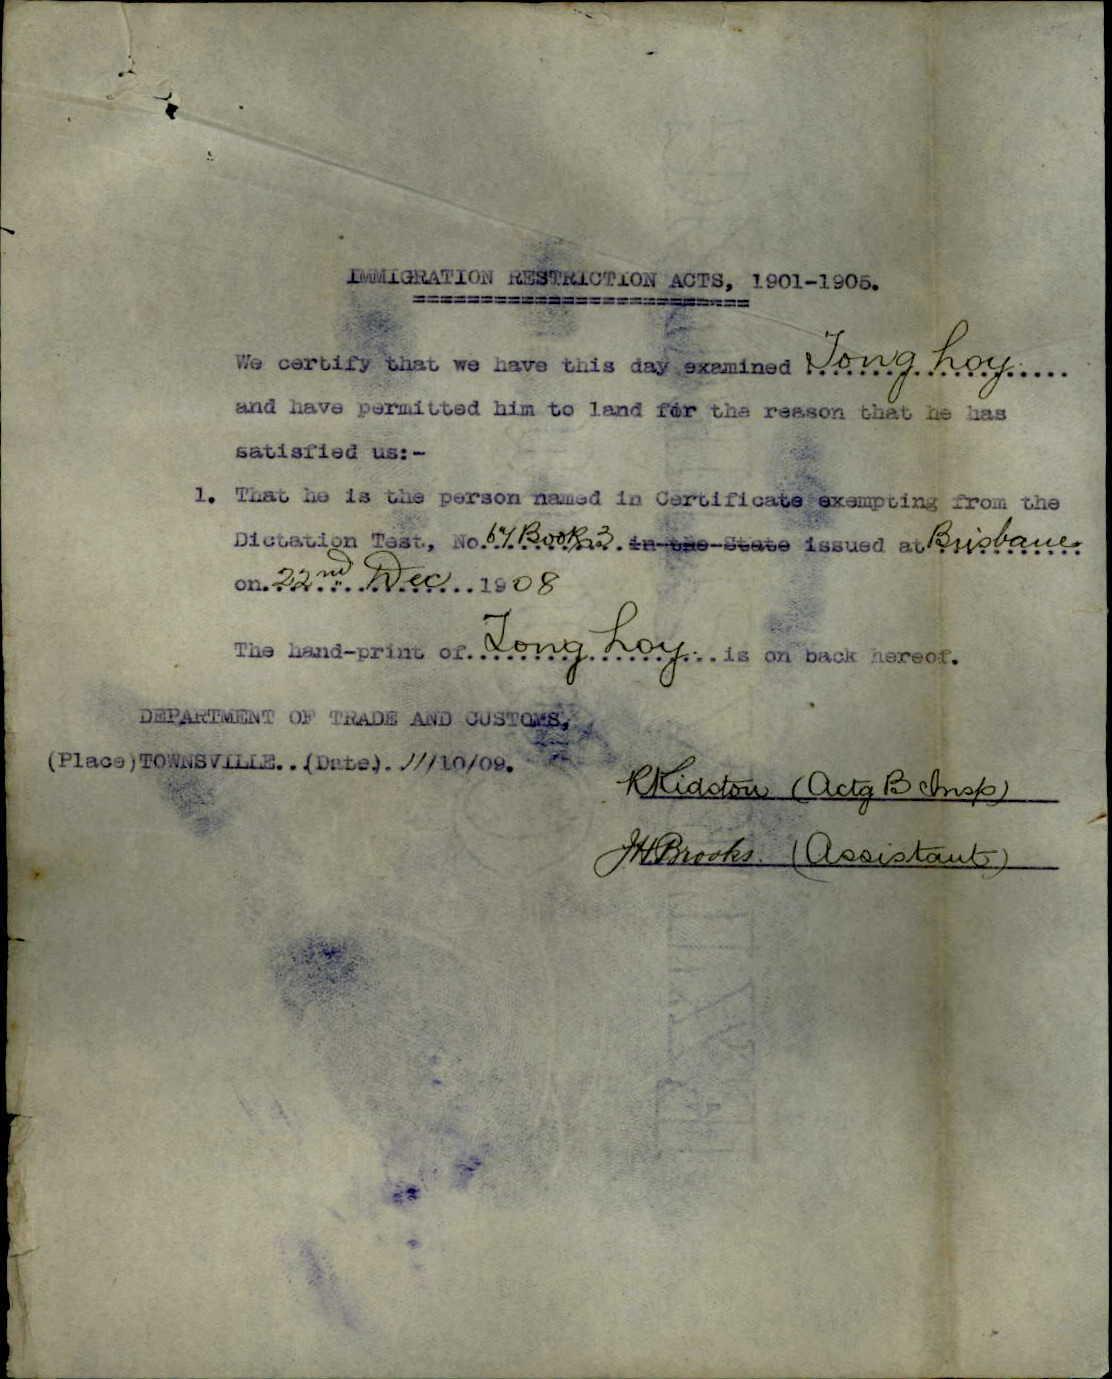 IMMIGRATION RESTRICTION ACTS, 1901-1905.
We certify that we have this day examined Tong Loy
and have permitted him to land for the reason that he has
satisfied us:-
1. That he is the person named in Certificate exempting from the
Dictation Test, No. 67 Book 3 in the State issued at Brisbane
on 22nd Dec 1908
The hand-print of Tong Loy is on back hereof.
DEPARTMENT OF TRADE AND CUSTOMS,
(Place) TOWNSVILLE..(Date). 11/10/09.
RKidston (Actg B Insp)
JHBrooks. (Assistant)